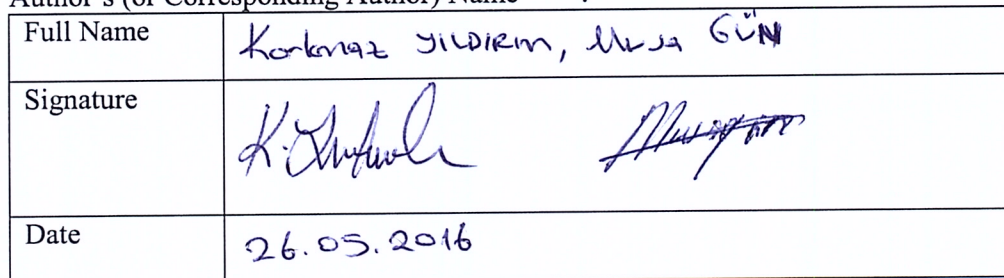 Author's (or Corresponding Author) Name
Full Name
Korkmaz YILDIRIM, Musa GÜN
Signature
Date
26.05.2016